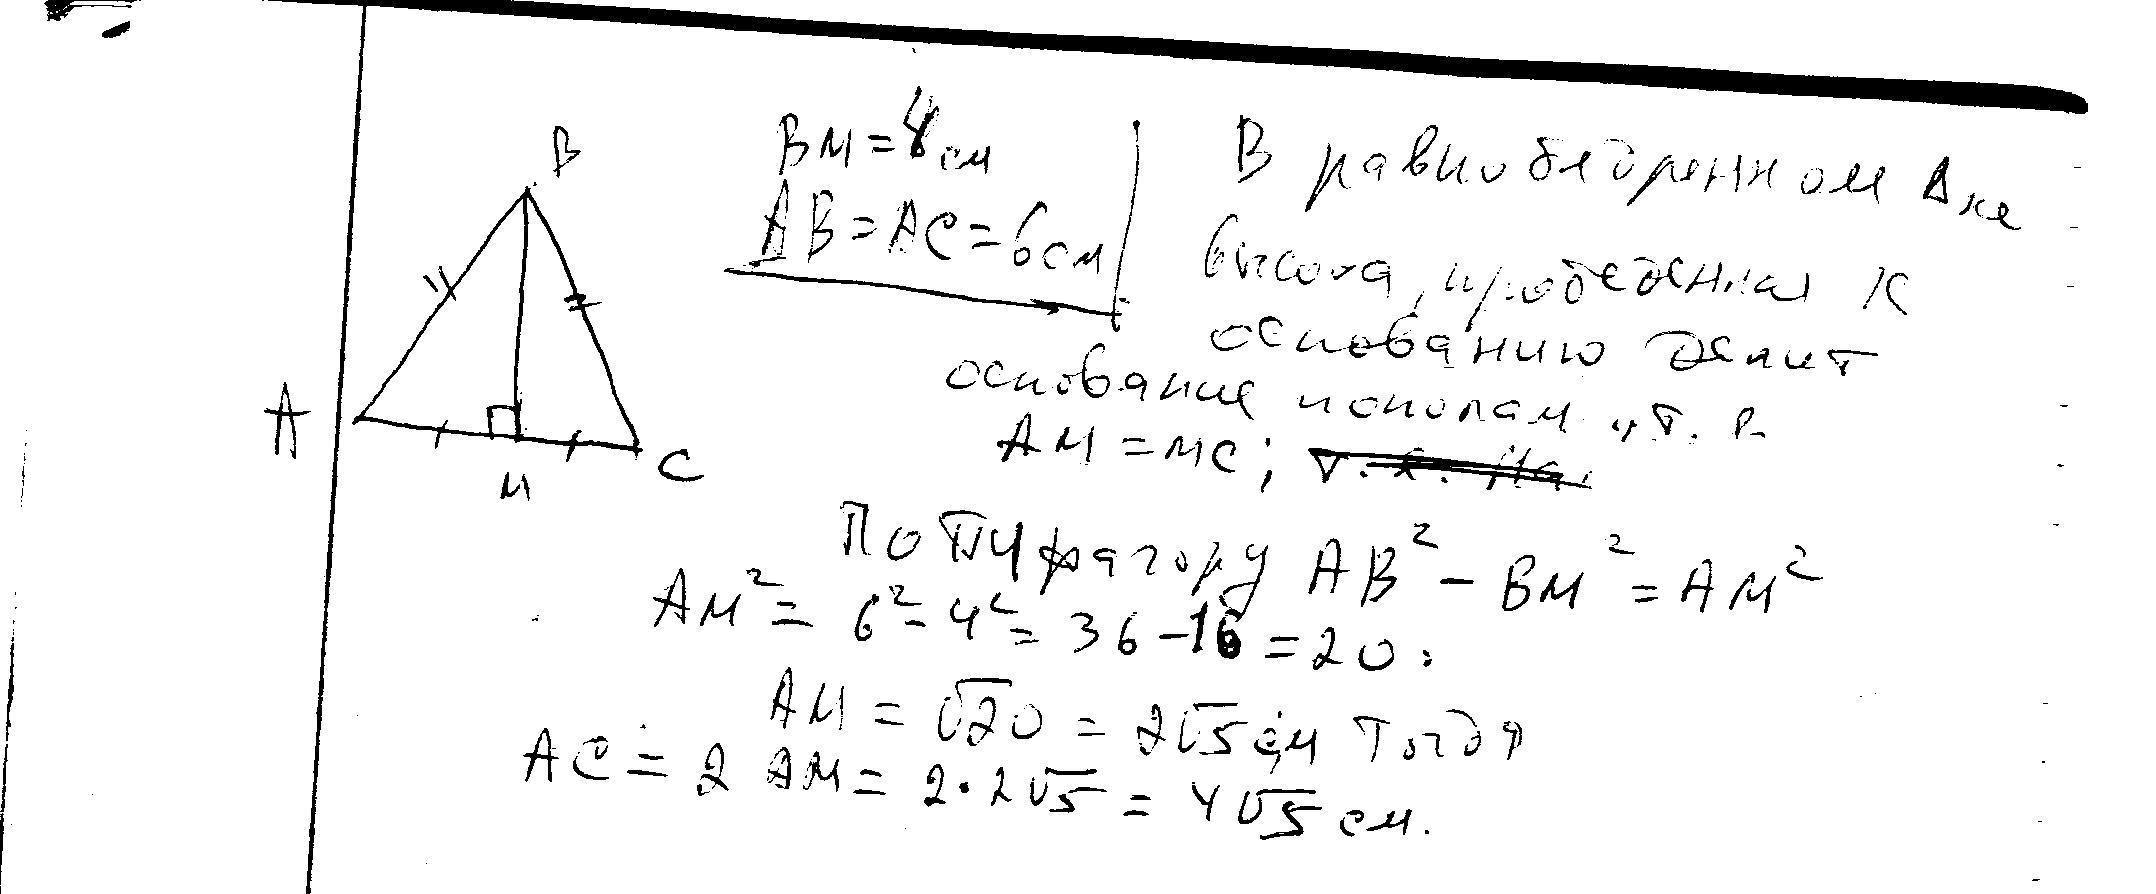 B
A
M
C
BM = 4 см
AB = AC = 6 см
В равнобедренном Δ-ке
высота, проведенная к
основанию делит
основание пополам, т. е.
AM = MC;
По Пифагору AB² - BM² = AM²
AM² = 6² - 4² = 36 - 16 = 20.
AM = √20 = 2√5 см Тогда
AC = 2 AM = 2·2√5 = 4√5 см.